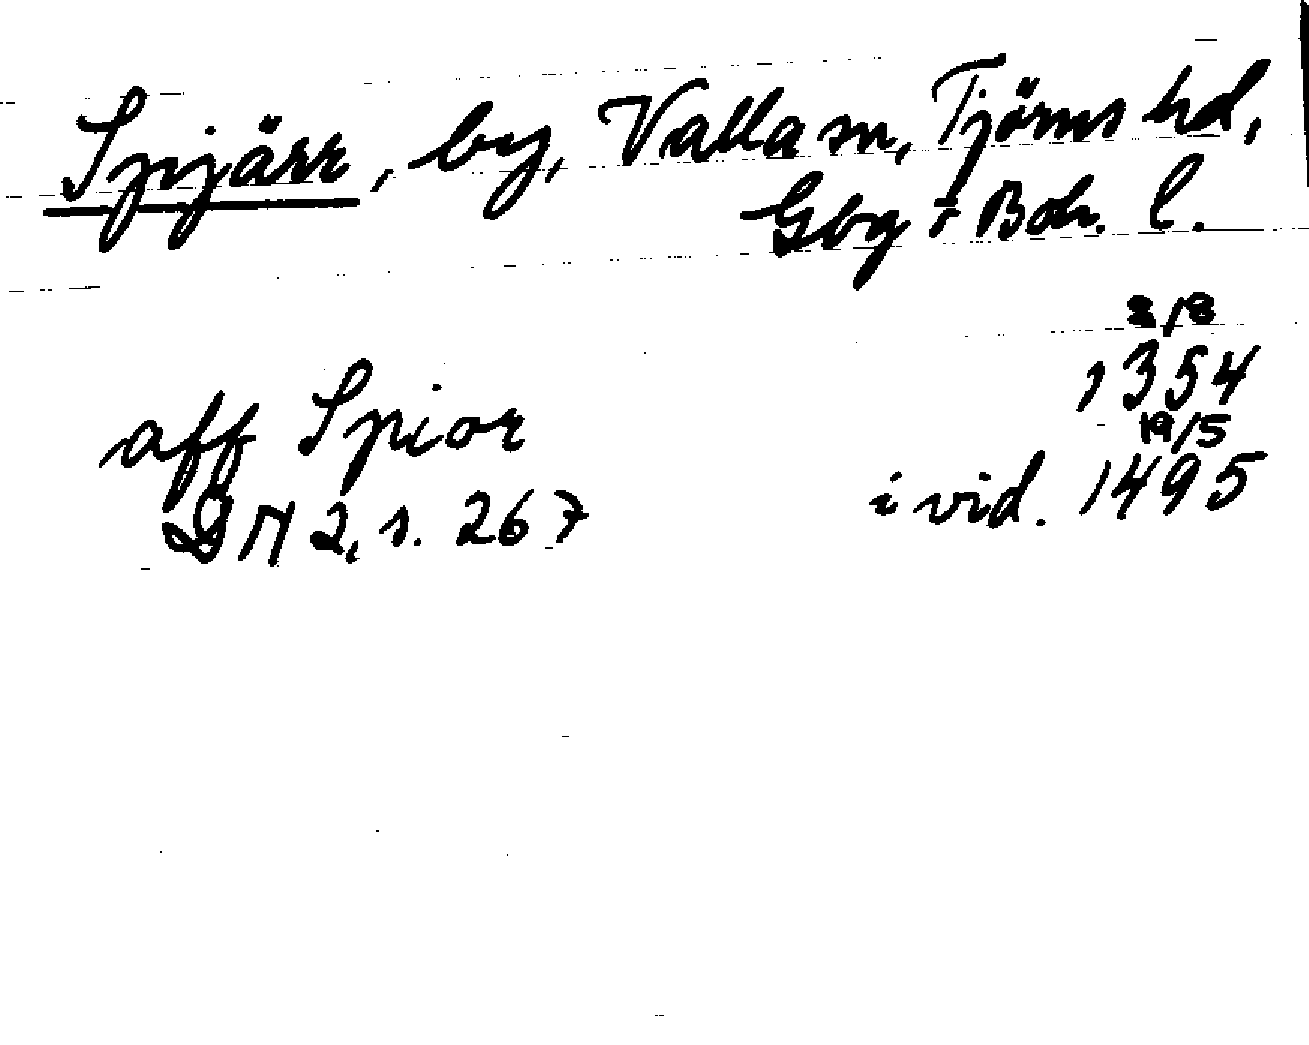 Spjärr, by, Valla sn, Tjörns hd,
Gbg o Boh. l.
3/8
aff Spior 1354
19/5
DN 2, s. 267 i vid. 1495